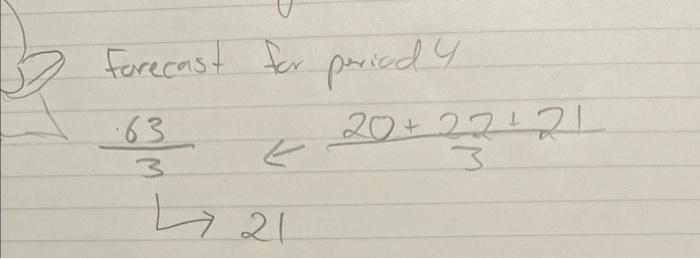 Forecast for period 4
63/3 ← (20 + 22 + 21)/3
↳ 21